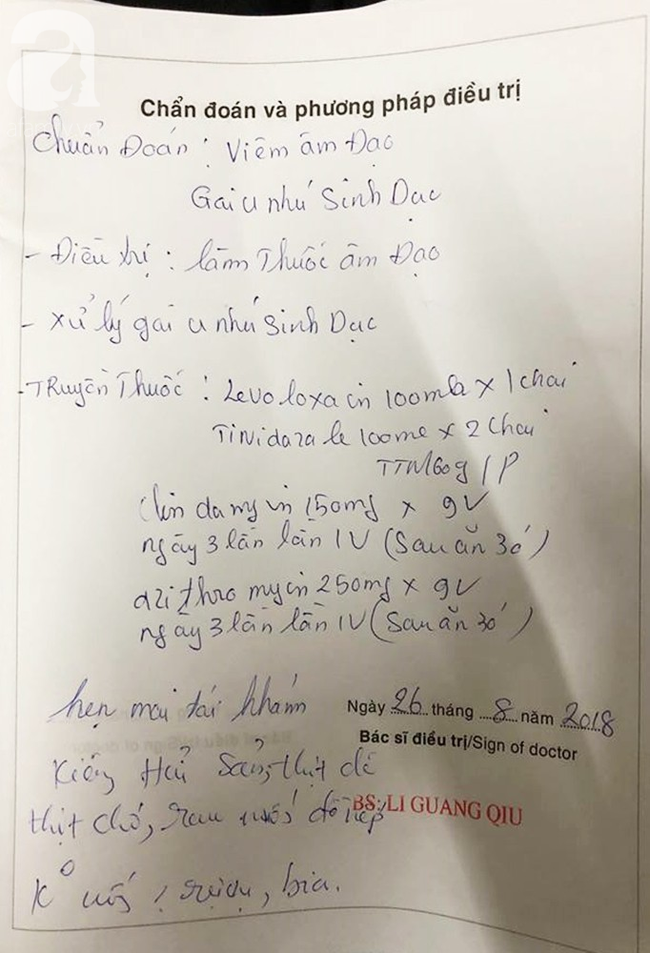 a
Chẩn đoán và phương pháp điều trị
Chuẩn Đoán : Viêm âm Đạo
Gai u nhú Sinh Dục
- Điều trị : làm Thuốc âm Đạo
- Xử lý gai u nhú Sinh Dục
- TRuyền Thuốc : Levoloxacin 100ml x 1 chai
Tinidazale 100ml x 2 Chai
TTM 60g / P
Clindamyin 150mg x 9V
ngày 3 lần lần 1V (Sau ăn 30')
azithromycin 250mg x 9V
ngày 3 lần lần 1V (Sau ăn 30')
hẹn mai tái khám
Ngày 26 tháng 8 năm 2018
Bác sĩ điều trị/Sign of doctor
Kiêng Hải Sản, thịt dê
thịt chó, rau
BS: LI GUANG QIU
K rượu, bia.